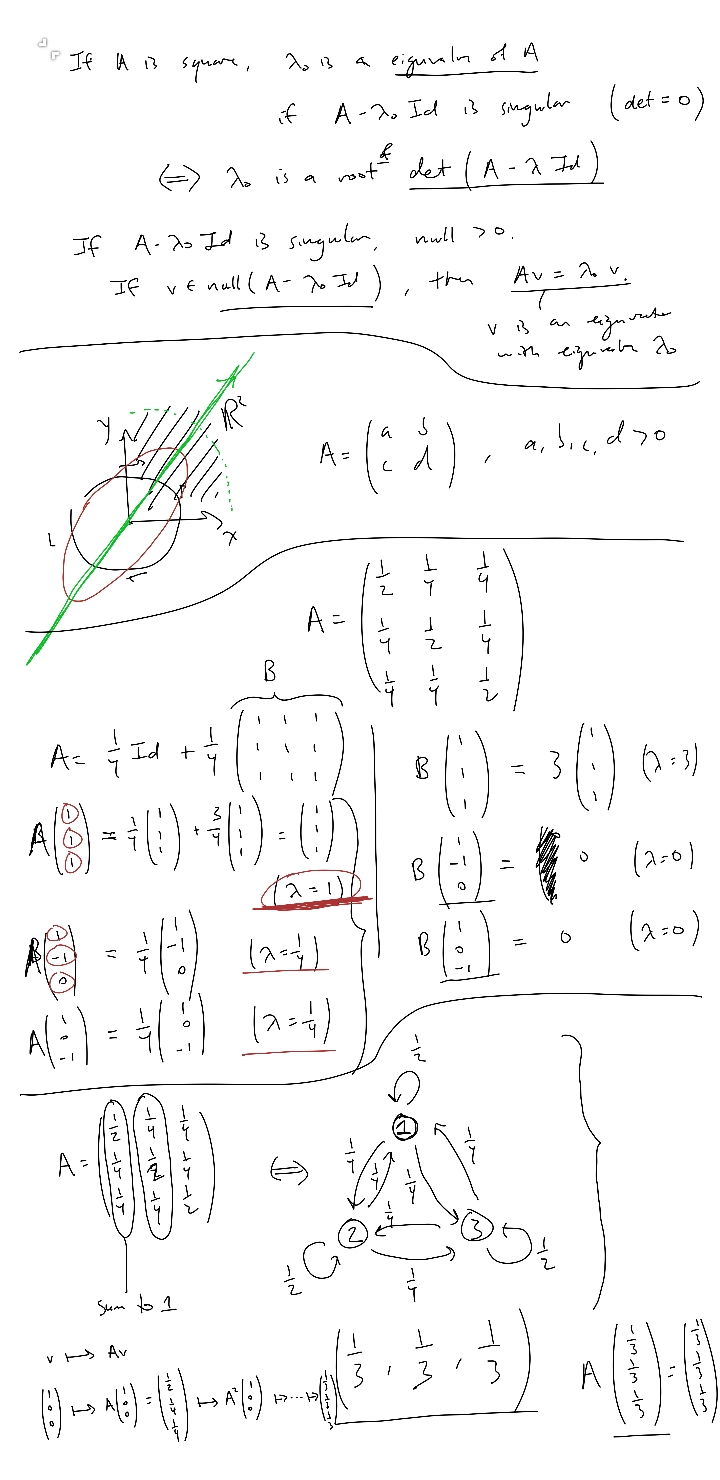 If A is square, λ₀ is a eigenvalue of A
if A - λ₀ Id is singular (det = 0)
⟺ λ₀ is a root of det (A - λ Id)
If A - λ₀ Id is singular, null > 0.
If v ∈ null (A - λ₀ Id), then Av = λ₀ v.
v is an eigenvector
with eigenvalue λ₀
y ℝ²
1 x
A = (a b; c d), a, b, c, d > 0
A = (1/2 1/4 1/4; 1/4 1/2 1/4; 1/4 1/4 1/2)
B
A = 1/4 Id + 1/4 (1 1 1; 1 1 1; 1 1 1)
A (1; 1; 1) = 1/4 (1; 1; 1) + 3/4 (1; 1; 1) = (1; 1; 1)
(λ = 1)
A (1; -1; 0) = 1/4 (1; -1; 0) (λ = 1/4)
A (1; 0; -1) = 1/4 (1; 0; -1) (λ = 1/4)
B (1; 1; 1) = 3 (1; 1; 1) (λ = 3)
B (1; -1; 0) = 0 (λ = 0)
B (1; 0; -1) = 0 (λ = 0)
A = (1/2 1/4 1/4; 1/4 1/2 1/4; 1/4 1/4 1/2) ⟺
1/2
1
1/4 1/4 1/4 1/4
1/4
2 3
1/2 1/4 1/2
sum to 1
v ↦ Av
(1; 0; 0) ↦ A (1; 0; 0) = (1/2; 1/4; 1/4) ↦ A² (1; 0; 0) ↦ ··· ↦ (1/3; 1/3; 1/3)
(1/3, 1/3, 1/3)
A (1/3; 1/3; 1/3) = (1/3; 1/3; 1/3)